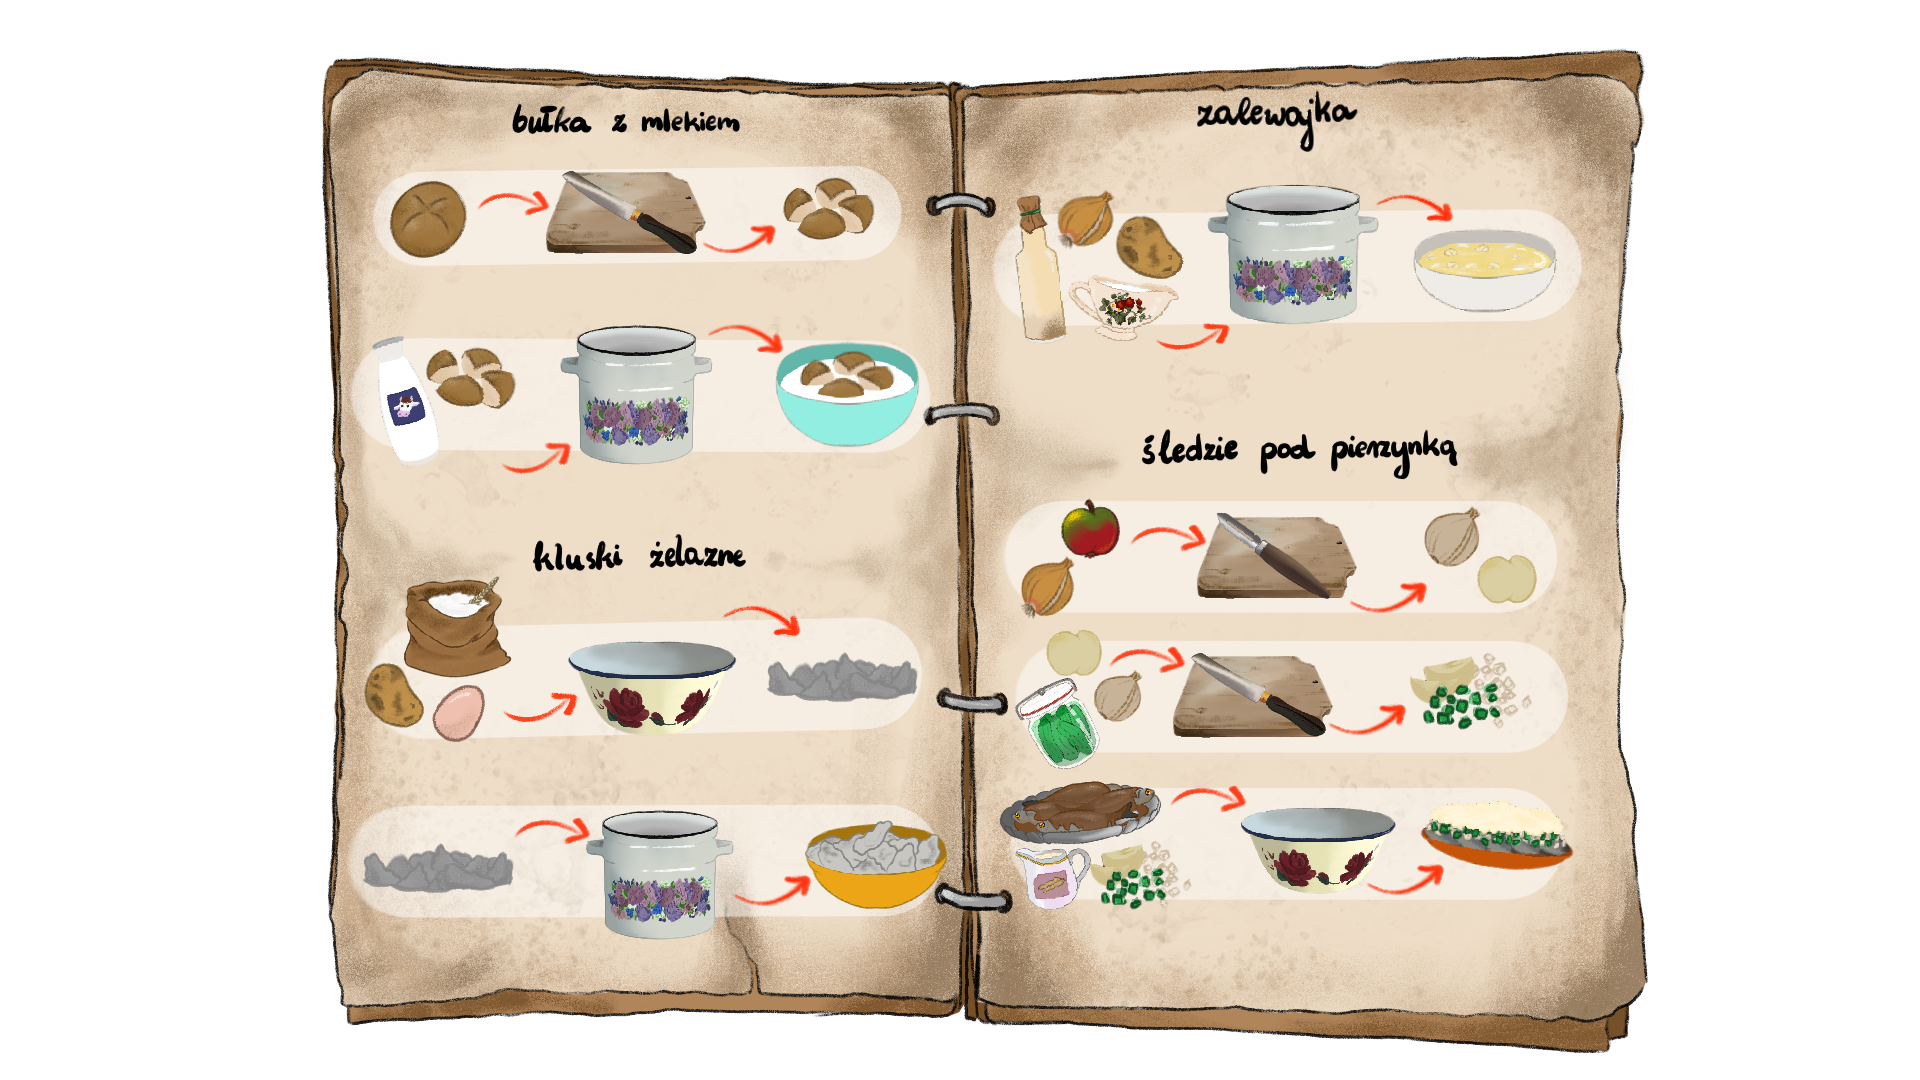 bułka z mlekiem
kluski żelazne
zalewajka
śledzie pod pierzynką